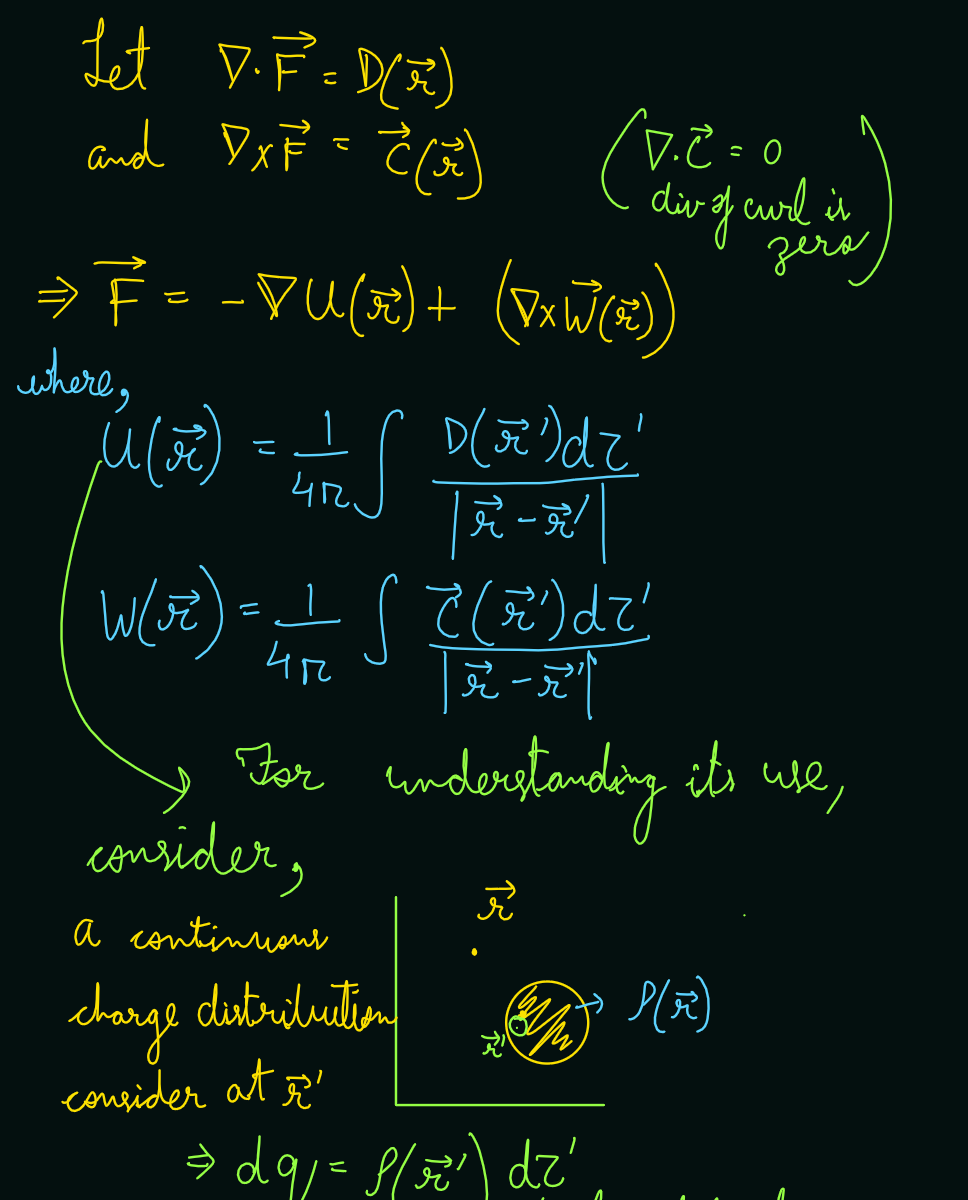 Let ∇·F⃗ = D(r⃗)
and ∇×F⃗ = C⃗(r⃗)
(∇·C⃗ = 0
div of curl is
zero)
⇒ F⃗ = -∇U(r⃗) + (∇×W⃗(r⃗))
where,
U(r⃗) = 1/4π ∫ D(r⃗')dτ' / |r⃗ - r⃗'|
W(r⃗) = 1/4π ∫ C⃗(r⃗')dτ' / |r⃗ - r⃗'|
For understanding its use,
consider,
a continuous
charge distribution
consider at r⃗'
r⃗
ρ(r⃗)
r⃗'
⇒ dq = ρ(r⃗') dτ'